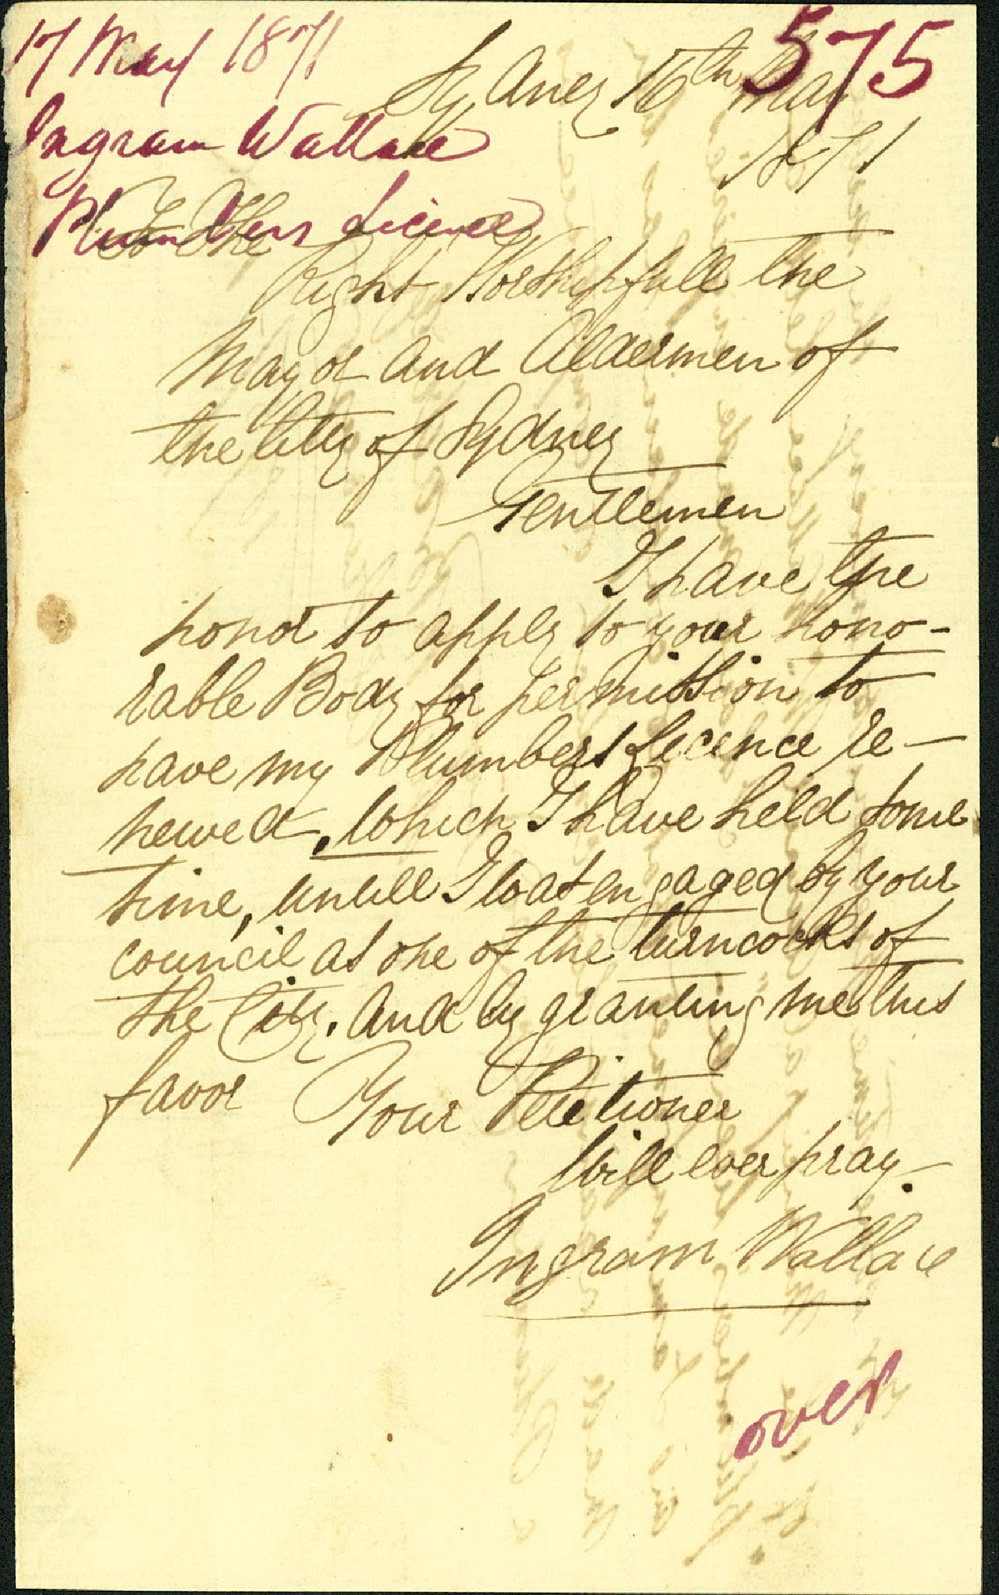 17 May 1871
575
Ingram Wallace
Plumbers Licence
Sydney 16th May
1871
To The
Right Worshipfull the
Mayor and Aldermen of
the City of Sydney
Gentlemen
I have the
honor to apply to your hono-
rable Body for permission to
have my Plumbers Licence re-
newed, Which I have held some
time, untill I was engaged by your
council as one of the turncocks of
the City. And by granting me this
favor Your Petitioner
Will ever pray.
Ingram Wallace
over